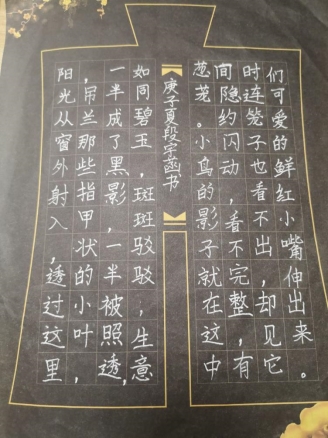 阳光从窗外射入,透过这里
,吊兰那些指甲状的小叶,
一半成了黑影,一半被照透,
如同碧玉,斑斑驳驳,生意
葱茏。小鸟的影子就在这中
间隐约闪动,看不完整,有
时连笼子也看不出,却见它
们可爱的鲜红小嘴伸出来。
庚子夏段宇菡书